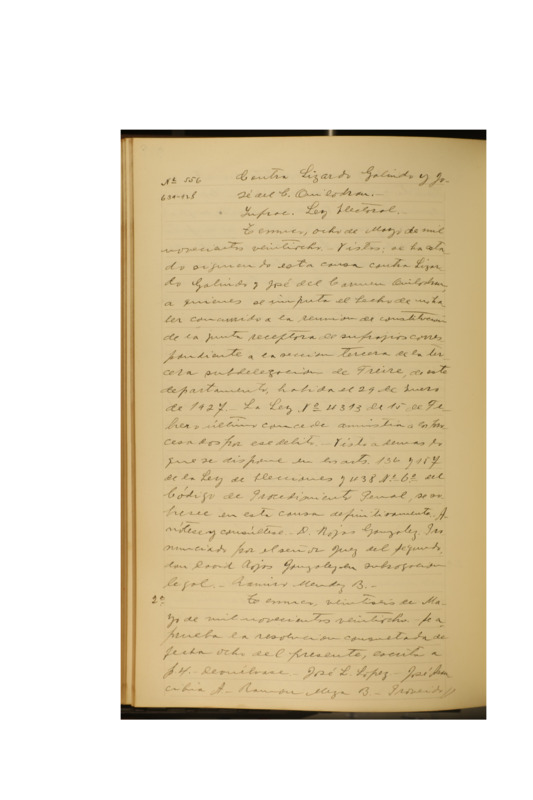 Nº 556 Contra Lizardo Galindo y Jo-
sé del C. Quilodran.-
Infrac. Ley Electoral.-
Temuco, ocho de Mayo de mil
novecientos veintiocho.- Vistos: se ha esta-
do siguiendo esta causa contra Lizar-
do Galindo y José del Carmen Quilodran,
a quienes se imputa el hecho de no ha-
ber concurrido a la reunion de constitucion
de la junta receptora de sufragios corres
pondiente a la seccion tercera de la ter-
cera subdelegacion de Freire, de este
departamento, habida el 29 de Enero
de 1927.- La Ley Nº 4313 de 15 de Fe-
brero último concede amnistia a los pro-
cesados por ese delito.- Visto ademas lo
que se dispone en los arts. 136 y 157
de la Ley de Elecciones y 438 Nº 6º del
Código de Procedimiento Penal, se so-
bresee en esta causa definitivamente. A-
nótese y consúltese.- D. Rojas Gonzalez Pro
nunciado por el señor Juez del segundo,
don David Rojas Gonzalez en subrogacion
legal.- Ramiro Mendez B.-
2º Temuco, veintiseis de Ma-
yo de mil novecientos veintiocho.- Se a
prueba la resolucion consultada de
fecha ocho del presente, escrita a
f 4.- Devuélvase.- José L. Lopez.- José
A.- Ramon Meza B.- Proveido